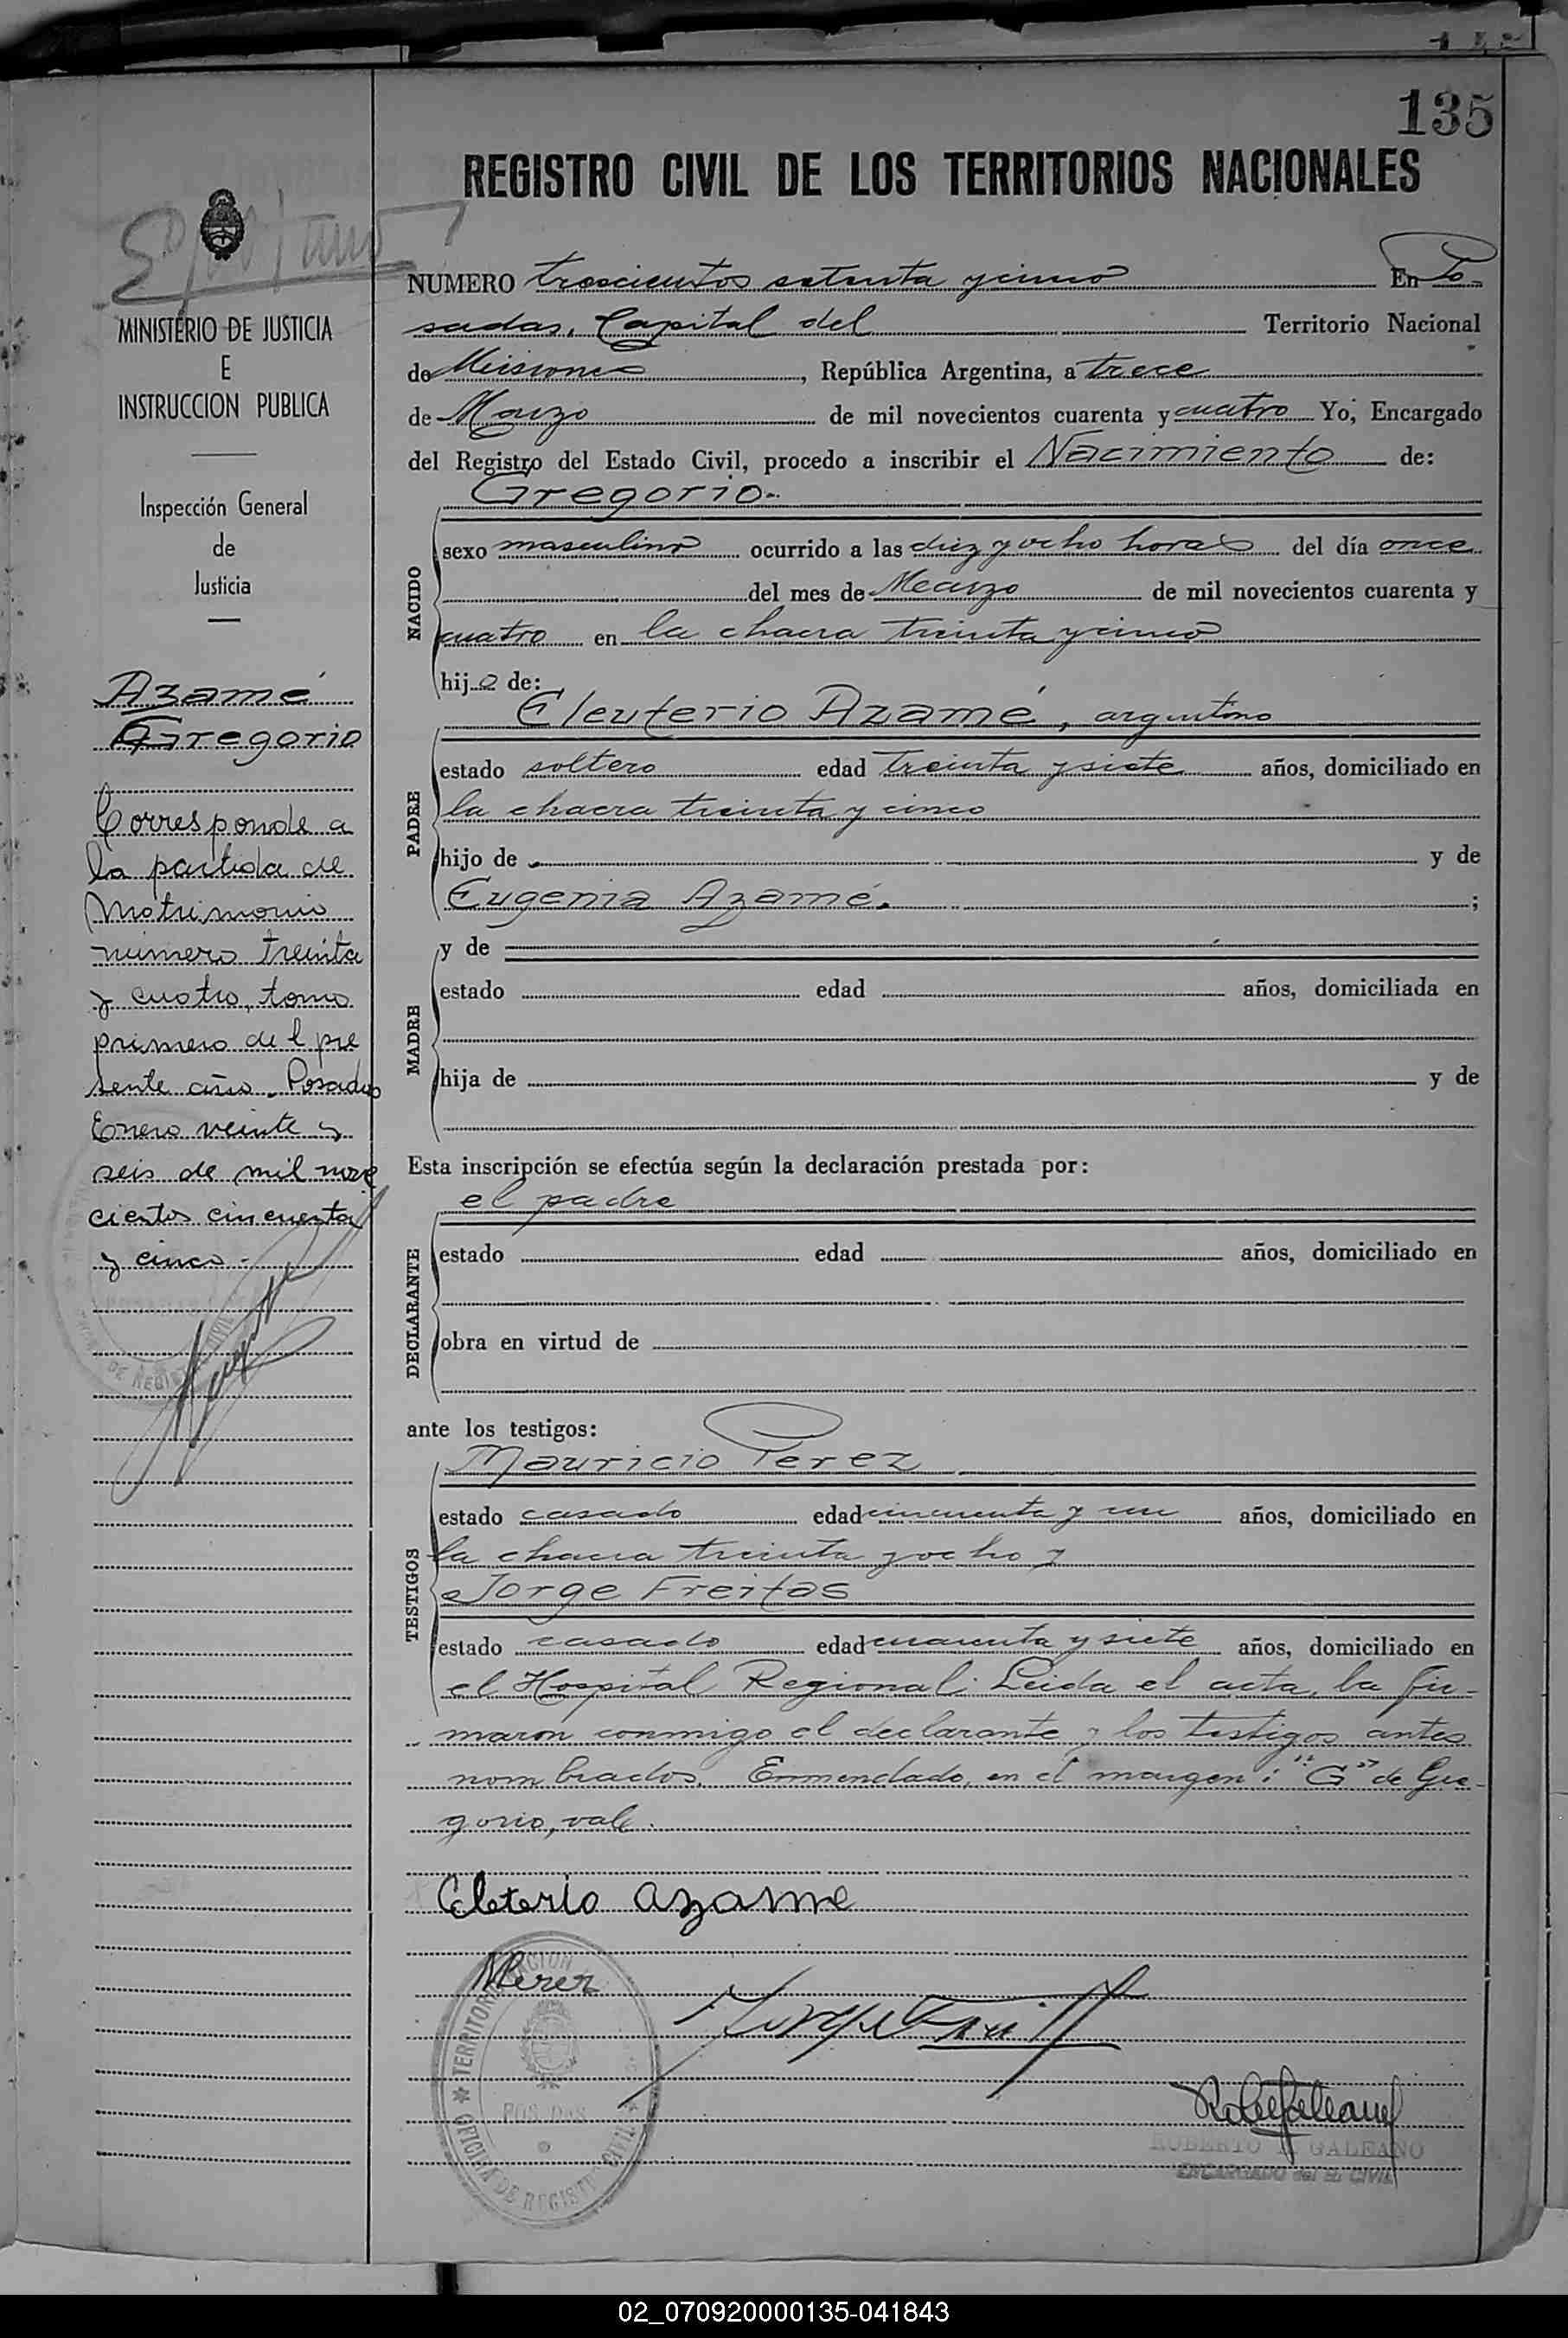 135
REGISTRO CIVIL DE LOS TERRITORIOS NACIONALES
MINISTERIO DE JUSTICIA
E
INSTRUCCION PUBLICA
Inspección General
de
Justicia
Azamé
Gregorio
Corresponde a
la partida de
Matrimonio
número treinta
y cuatro, tomo
primero del pre
sente año. Posadas
Enero veinte y
seis de mil nove
cientos cincuenta
y cinco.-
NUMERO trescientos setenta y cinco En Po-
sadas, Capital del Territorio Nacional
de Misiones, República Argentina, a trece
de Marzo de mil novecientos cuarenta y cuatro Yo, Encargado
del Registro del Estado Civil, procedo a inscribir el Nacimiento de:
Gregorio.-
NACIDO
sexo masculino ocurrido a las diez y ocho horas del día once
del mes de Marzo de mil novecientos cuarenta y
cuatro en la chacra treinta y cinco
hijo de:
Eleuterio Azamé, argentino
PADRE
estado soltero edad treinta y siete años, domiciliado en
la chacra treinta y cinco
hijo de y de
Eugenia Azamé. ;
MADRE
y de
estado edad años, domiciliada en
hija de y de
Esta inscripción se efectúa según la declaración prestada por:
el padre
DECLARANTE
estado edad años, domiciliado en
obra en virtud de
ante los testigos:
Mauricio Perez
TESTIGOS
estado casado edad cincuenta y un años, domiciliado en
la chacra treinta y ocho y
Jorge Freitas
estado casado edad cuarenta y siete años, domiciliado en
el Hospital Regional. Leida el acta, la fir-
maron conmigo el declarante y los testigos antes
nombrados. Enmendado, en el margen: "G" de Gre-
gorio, vale.
Eleterio azame
MPerez
ROBERTO GALEANO
ENCARGADO del R. CIVIL
02_070920000135-041843